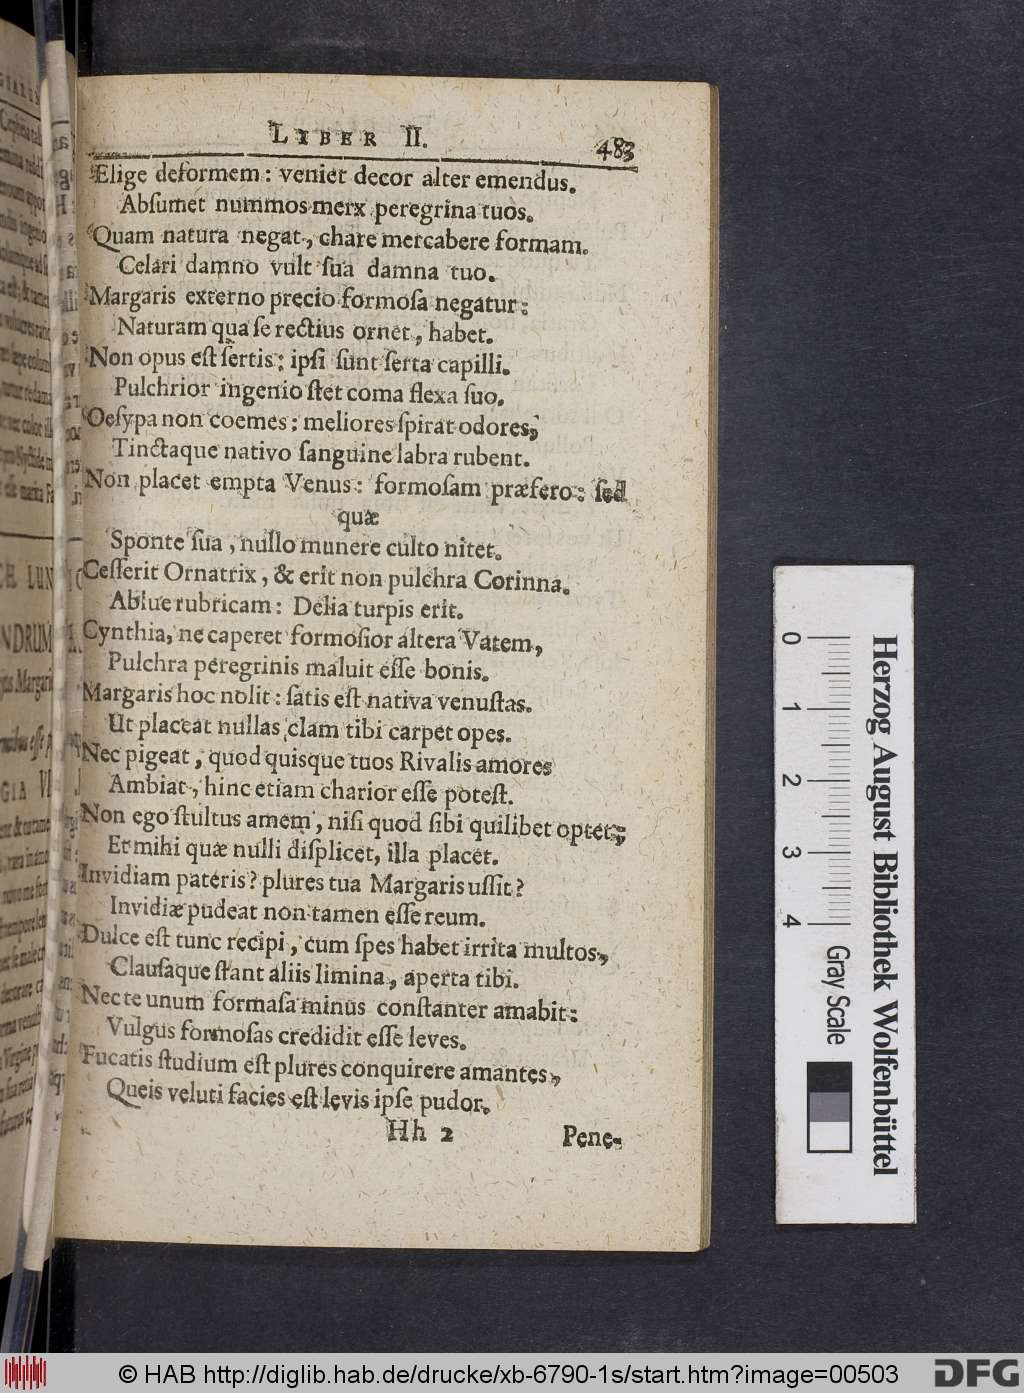 LIBER II. 483
Elige deformem: veniet decor alter emendus.
Abſumet nummos merx peregrina tuos.
Quam natura negat, chare mercabere formam.
Celari damno vult ſua damna tuo.
Margaris externo precio formoſa negatur:
Naturam qua ſe rectius ornet, habet.
Non opus eſt ſertis: ipſi ſunt ſerta capilli.
Pulchrior ingenio ſtet coma flexa ſuo.
Oeſypa non coemes: meliores ſpirat odores,
Tinctaque nativo ſanguine labra rubent.
Non placet empta Venus: formoſam præfero: ſed
quæ
Sponte ſua, nullo munere culto nitet.
Ceſſerit Ornatrix, & erit non pulchra Corinna.
Ablue rubricam: Delia turpis erit.
Cynthia, ne caperet formoſior altera Vatem,
Pulchra peregrinis maluit eſſe bonis.
Margaris hoc nolit: ſatis eſt nativa venuſtas.
Ut placeat nullas clam tibi carpet opes.
Nec pigeat, quod quisque tuos Rivalis amores
Ambiat, hinc etiam charior eſſe poteſt.
Non ego ſtultus amem, niſi quod ſibi quilibet optet;
Et mihi quæ nulli diſplicet, illa placet.
Invidiam pateris? plures tua Margaris uſſit?
Invidiæ pudeat non tamen eſſe reum.
Dulce eſt tunc recipi, cum ſpes habet irrita multos,
Clauſaque ſtant aliis limina, aperta tibi.
Nec te unum formaſa minus conſtanter amabit:
Vulgus formoſas credidit eſſe leves.
Fucatis ſtudium eſt plures conquirere amantes,
Queis veluti facies eſt levis ipſe pudor.
Hh 2 Pene-
0 1 2 3 4
Herzog August Bibliothek Wolfenbüttel
Gray Scale
© HAB http://diglib.hab.de/drucke/xb-6790-1s/start.htm?image=00503
DFG